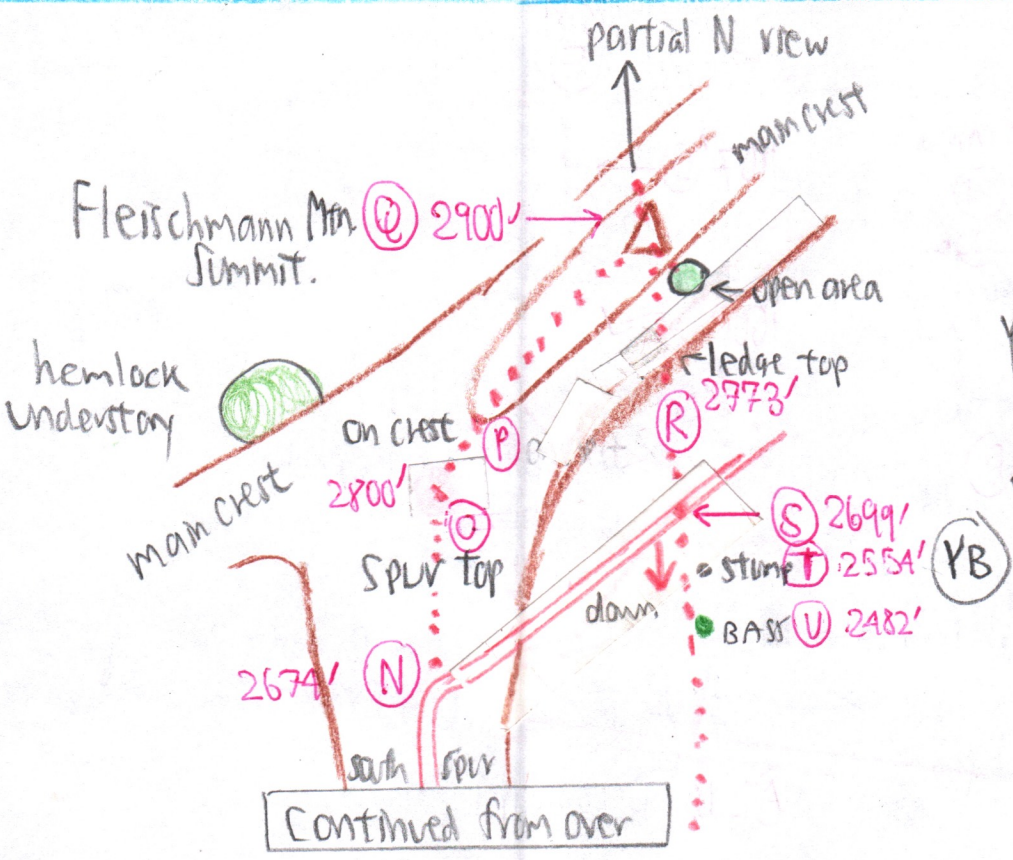 partial N view
main crest
Fleischmann Mtn. Q 2900'
Summit.
open area
hemlock
understory
ledge top
R 2773'
on crest P
2800'
O
main crest
Spur Top
S 2699'
stump T 2554' YB
down
BASS U 2482'
2674' N
south spur
Continued from over